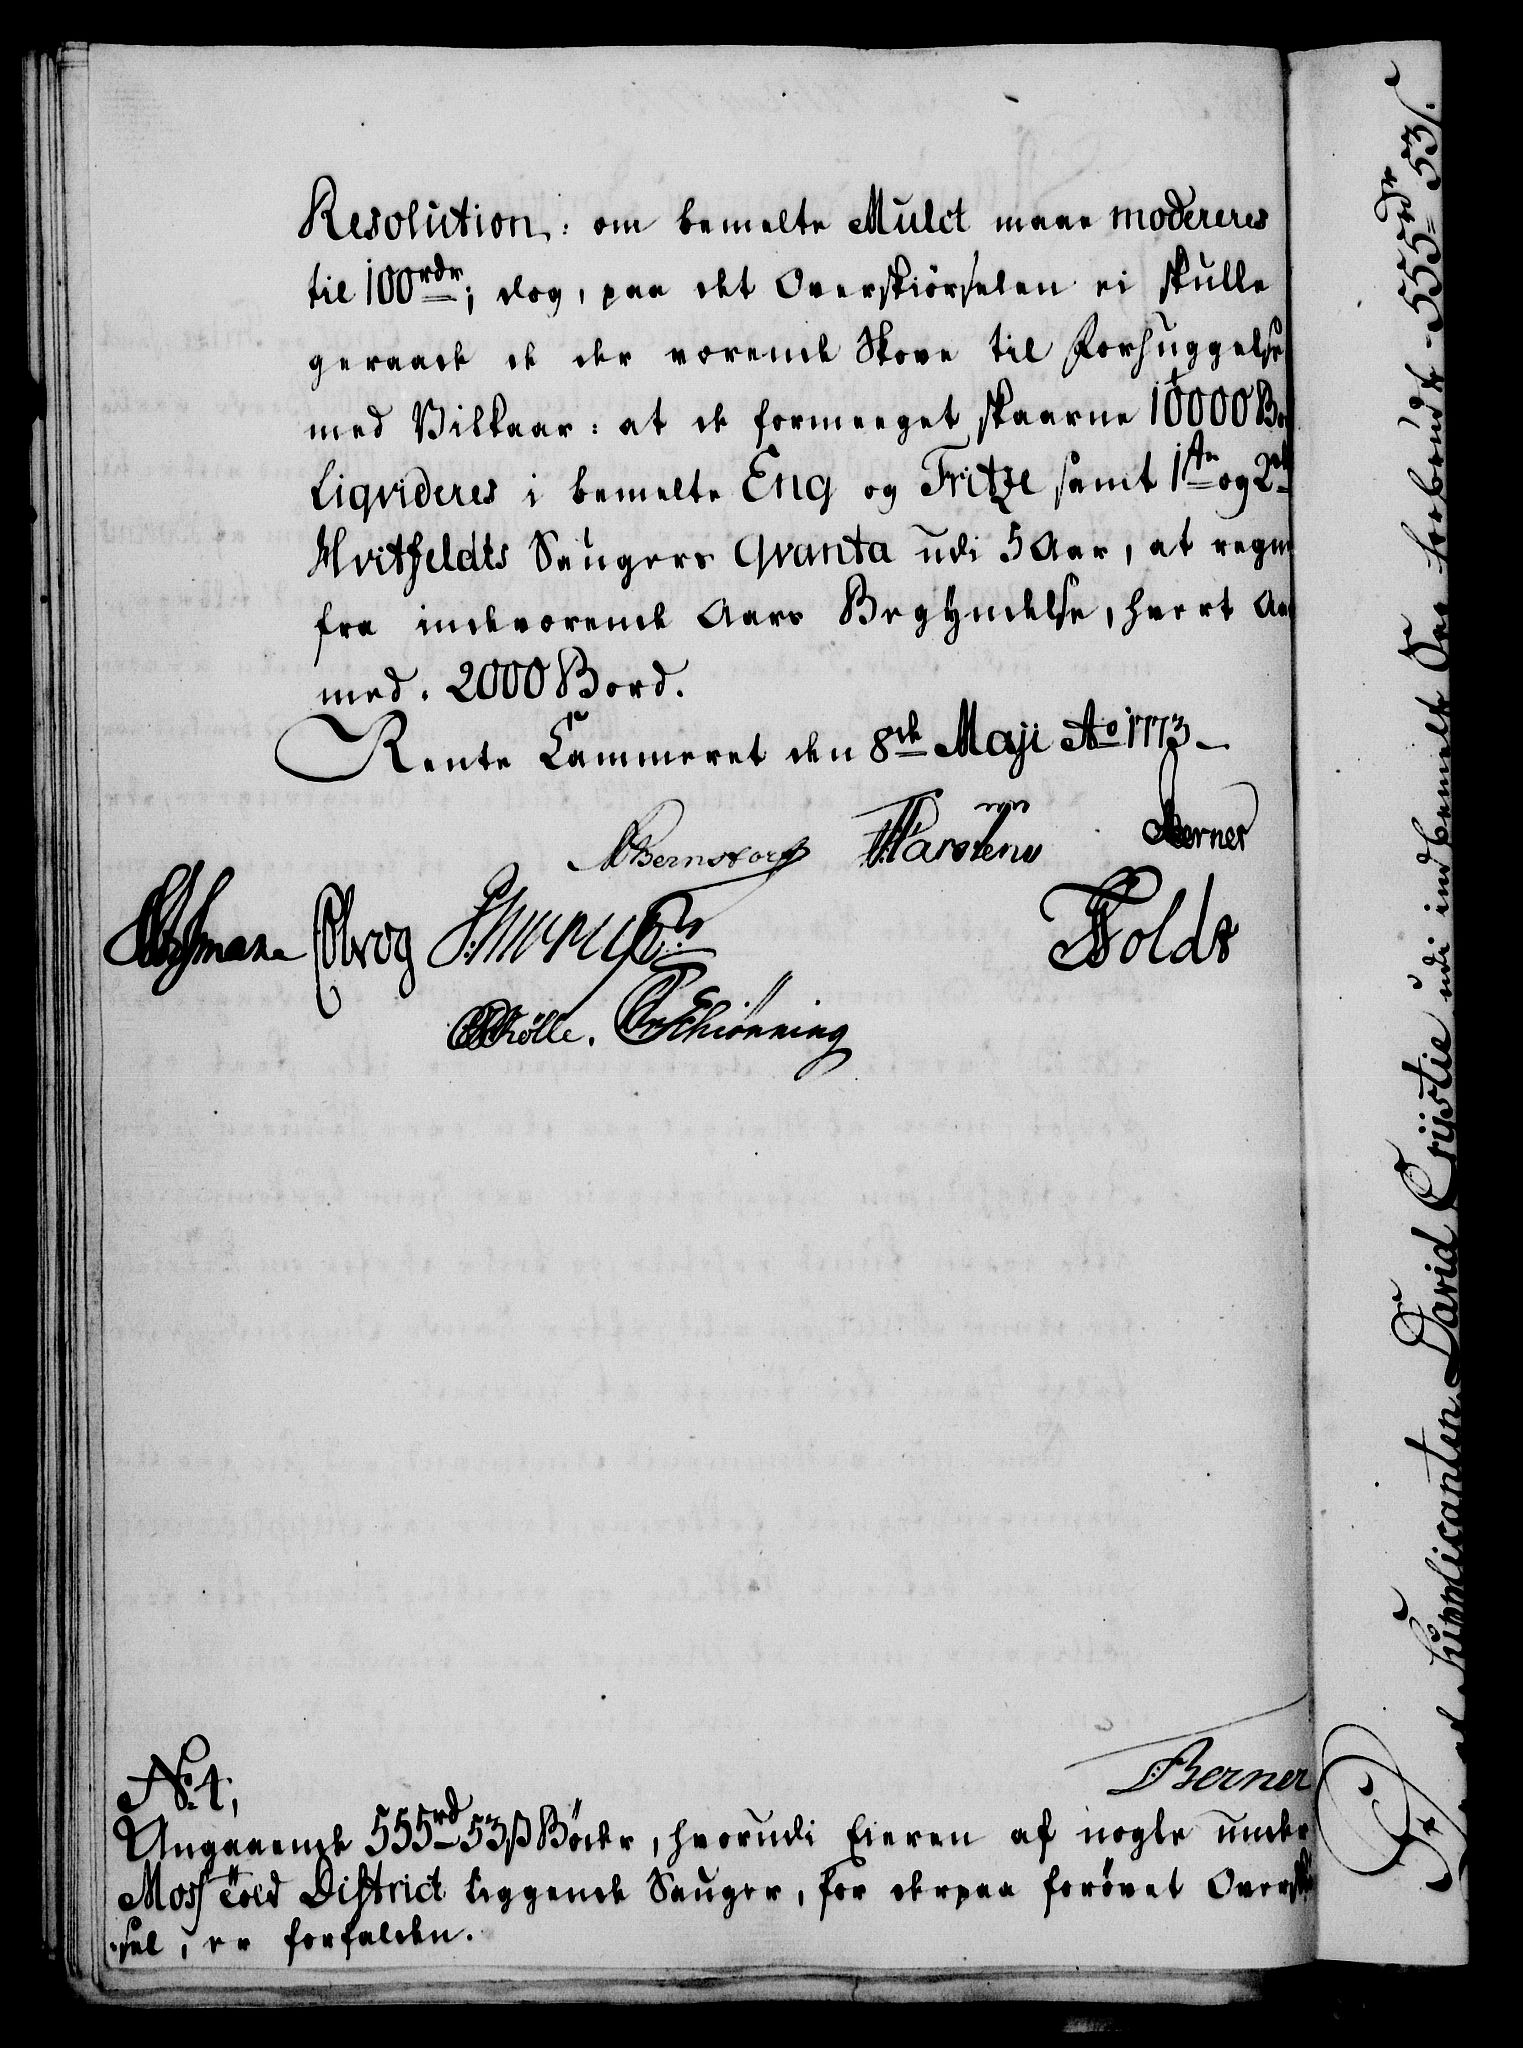 Resolution: om bemelte Mulct maae modereres
til 100 rdr; dog, paa det Overskiörselen ei skulle
geraade de der værende Skove til Forhuggelse
med Vilkaar: at de formeeget skaarne 10000 Bo
Liqvideres i bemelte Eng og Fritze samt 1ste og 2de
Hvitfeldts Saugers Qvanta udi 5 Aar, at regne
fra indeværende Aars Begyndelse, hvert Aa
med 2000 Bord.
Rente Cammeret den 8de Maji Ao 1773
Bernstorff Martens Berner
Olrog Holdt
Schiönning
No 4,
Berner
Angaaende 555 rd 53 ß Böder, hvorudi Eieren af nogle under
Moss Told District liggende Sauger, for derpaa forövet Overskiör
sel, er forfalden.
Supplicanten Dr David Cristie udi indbemelte Sag forbundt 555 rdr 53 s.